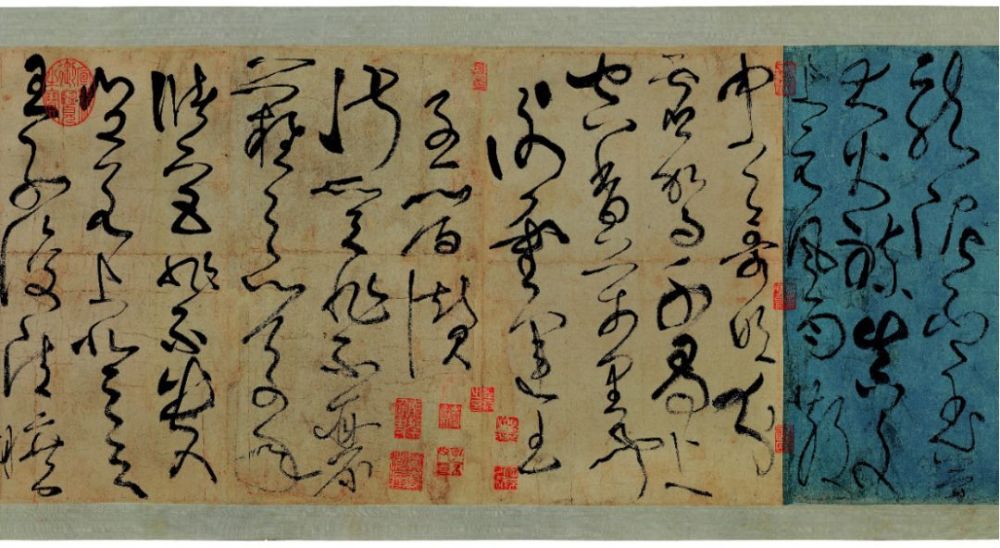 龍泥印玉策
大火煉真文
上元風雨散
中天歌吹分
靈駕千尋上
空香萬里聞
謝靈運王
子晉讚
淑質非不麗
難之以萬年
儲宮非不貴
豈若上登天
王子復清曠